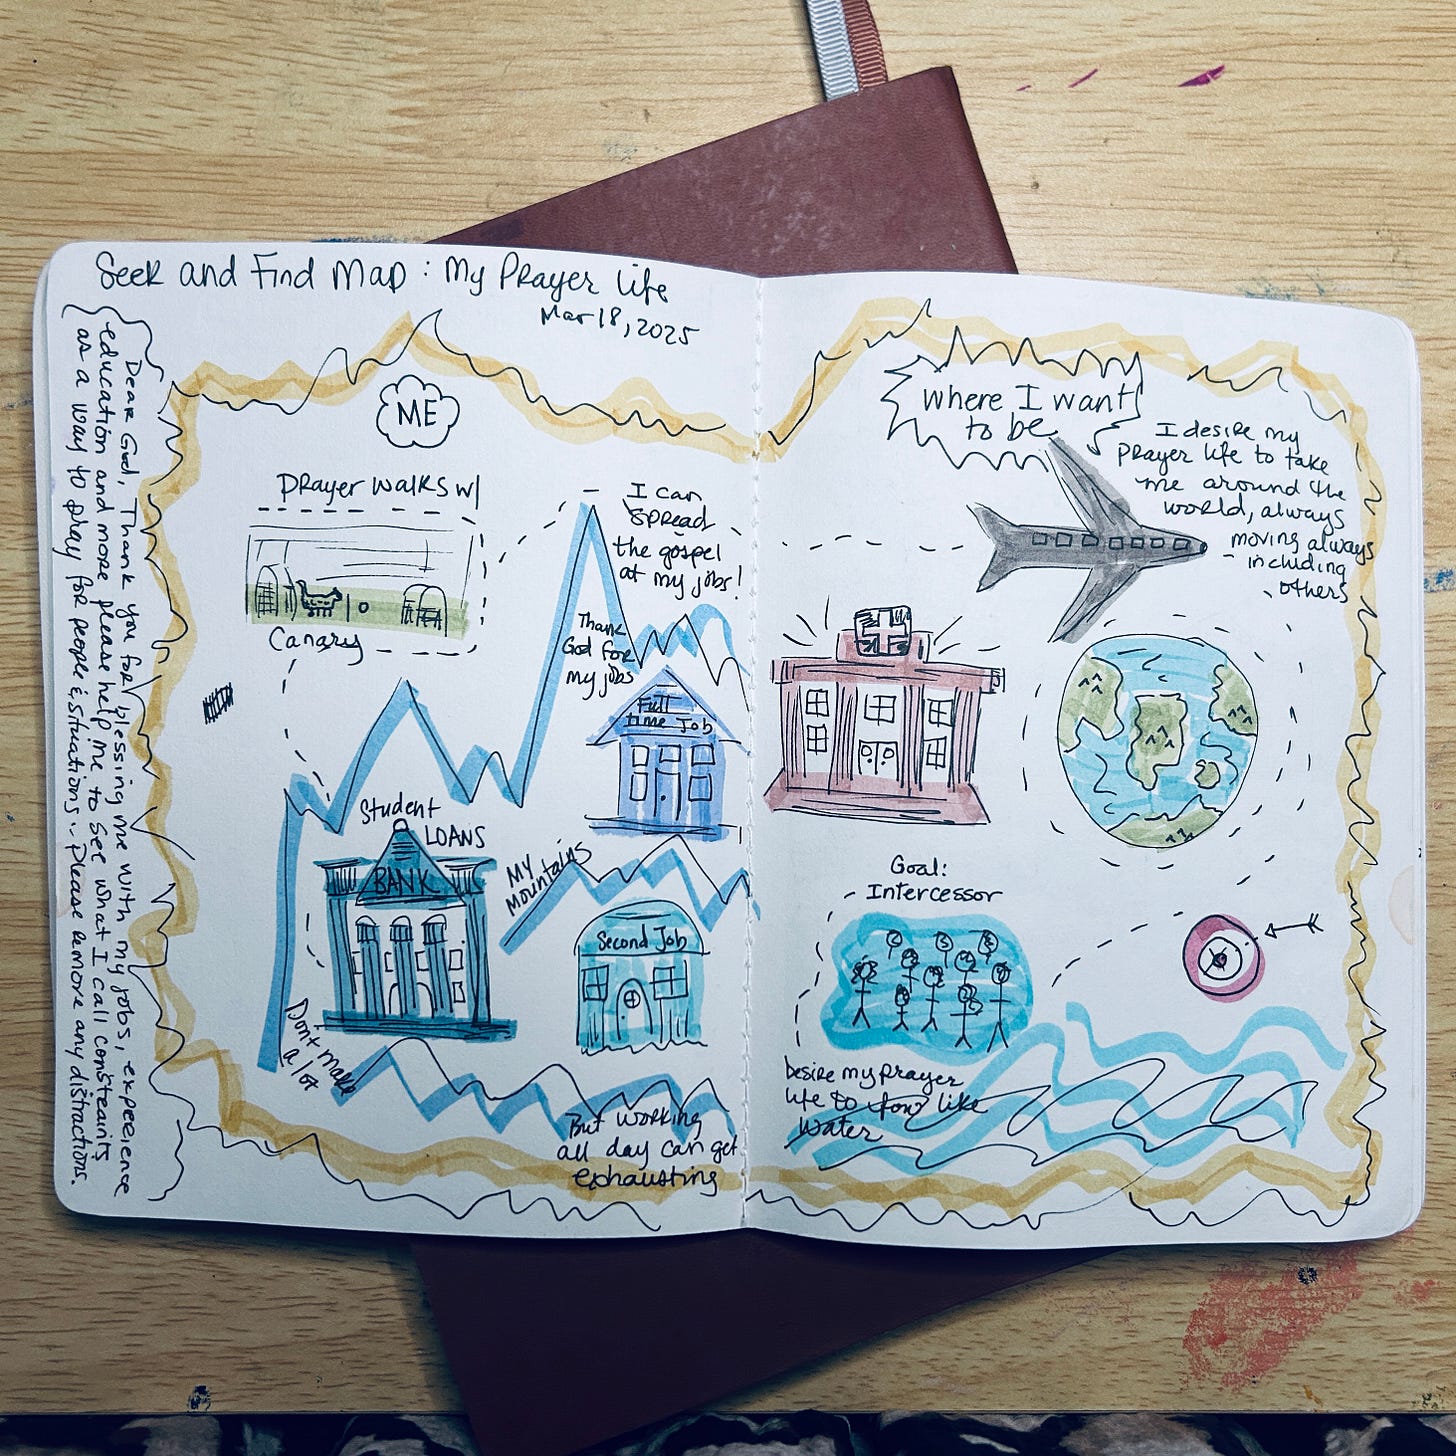 Seek and Find Map: My Prayer Life
Mar 18, 2025
Dear God, Thank you for blessing me with my jobs, experience
education and more please help me to see what I call constraints
as a way to pray for people & situations. Please remove any distractions.
ME
Prayer walks w/
Canary
I can
spread
the gospel
at my jobs!
Thank
God for
my jobs
Full
time Job
Student
LOANS
BANK
My
Mountains
Second Job
Don't make
a lot
But working
all day can get
exhausting
Where I want
to be
I desire my
prayer life to take
me around the
world, always
moving always
including
others
Goal:
Intercessor
Desire my prayer
life to flow like
water